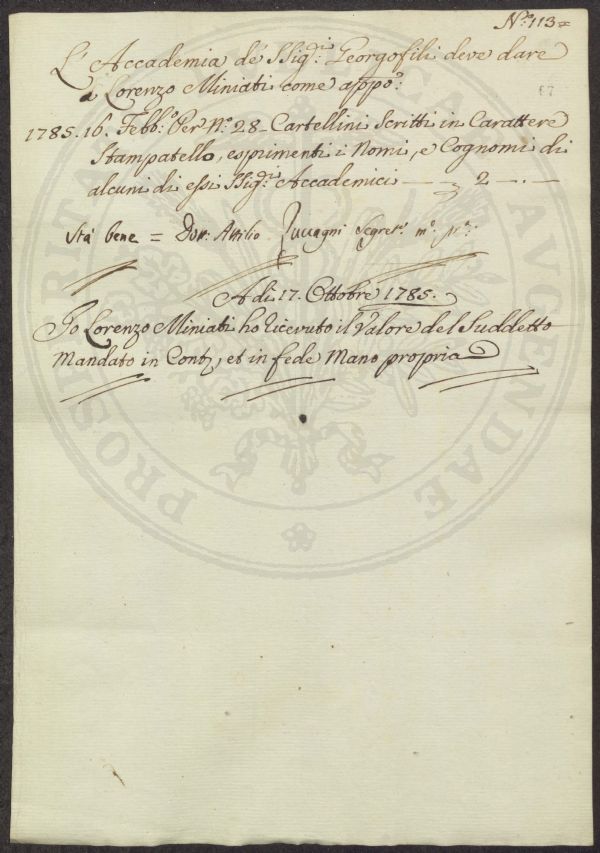 N.° 113
67
L'Accademia de' SSig.ri Georgofili deve dare
a Lorenzo Miniati come appo:
1785. 16. Febb.° Per N.° 28 Cartellini Scritti in Carattere
Stampatello, esprimenti i Nomi, e Cognomi di
alcuni di essi SSig.ri Accademici — 2 — . —
Sta bene = Dott. Attilio Zuccagni Segret.° m.° p.°
A di 17. Ottobre 1785.
Io Lorenzo Miniati ho ricevuto il Valore del Suddetto
Mandato in Conti, et in fede Mano propria
PROSPERITATI PUBLICAE AUGENDAE